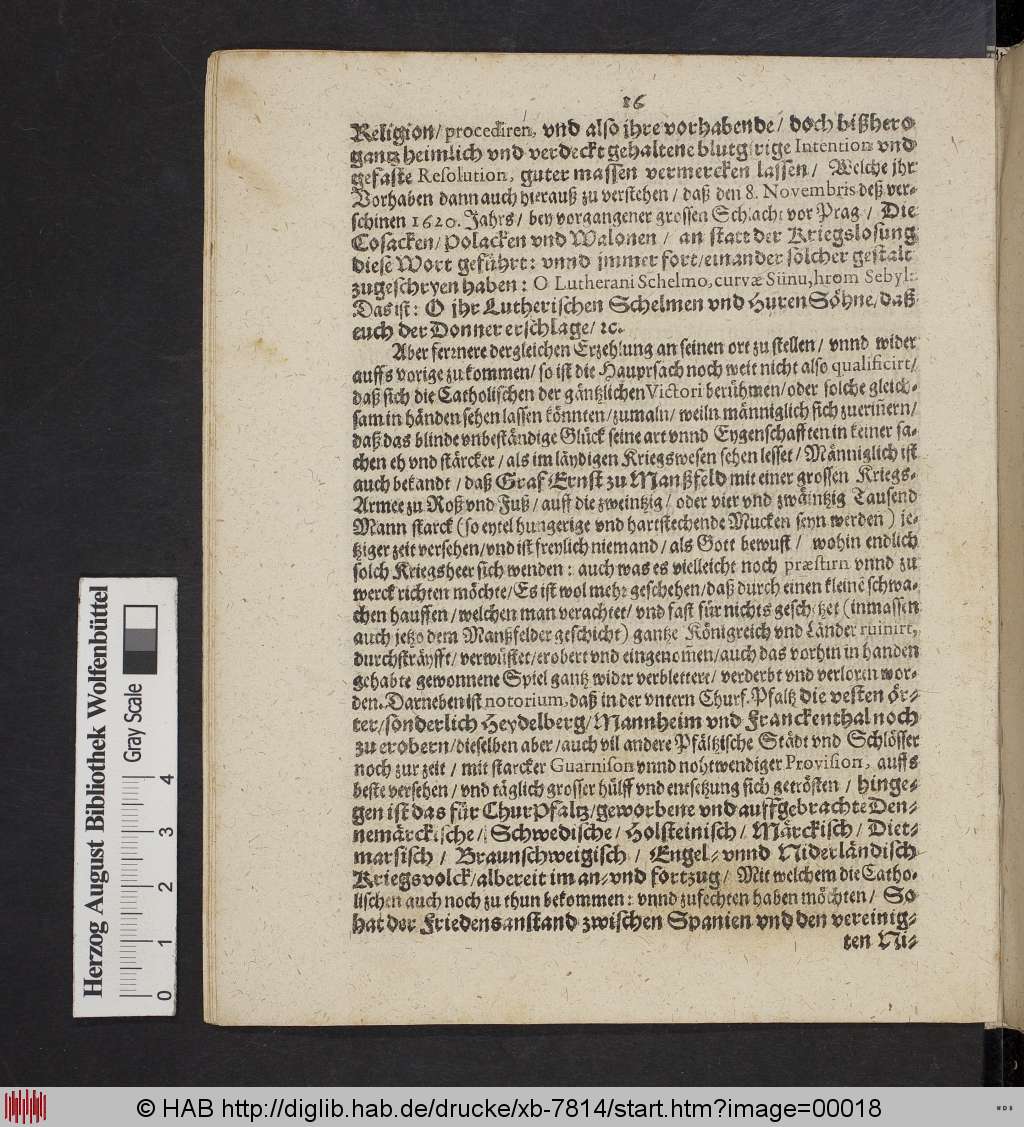 16
Religion/ procediren, vnd also jhre vorhabende/ doch bißhero
gantz heimlich vnd verdeckt gehaltene blutgirige Intention vnd
gefaste Resolution, guter massen vermercken lassen/ Welche jhr
Vorhaben dann auch hierauß zu verstehen/ daß den 8. Novembris deß ver-
schinen 1620. Jahrs/ bey vorgangener grossen Schlacht vor Prag/ Die
Cosacken/ Polacken vnd Walonen/ an statt der Kriegslosung
diese Wort geführt: vnnd jmmer fort/ einander solcher gestalt
zugeschryen haben: O Lutherani Schelmo, curvæ Sünu, hrom Sebyl:
Das ist: O jhr Lutherischen Schelmen vnd Huren Söhne/ daß
euch der Donner erschlage/ ꝛc.
Aber fernnere dergleichen Erzehlung an seinen ort zu stellen/ vnnd wider
auffs vorige zu kommen/ so ist die Hauptsach noch weit nicht also qualificirt/
daß sich die Catholischen der gäntzlichen Victori berühmen/ oder solche gleich-
sam in händen sehen lassen könnten/ zumaln/ weiln männiglich sich zuerin̄ern/
daß das blinde vnbeständige Glück seine art vnnd Eygenschafften in keiner sa-
chen eh vnd stärcker/ als im läydigen Kriegswesen sehen lesset/ Männiglich ist
auch bekandt/ daß Graf Ernst zu Manßfeld mit einer grossen Kriegs-
Armee zu Roß vnd Fuß/ auff die zweintzig/ oder vier vnd zwäintzig Tausend
Mann starck (so eytel hungerige vnd hartstechende Mucken seyn werden) je-
tziger zeit versehen/ vnd ist freylich niemand/ als Gott bewust/ wohin endlich
solch Kriegsheer sich wenden: auch was es vielleicht noch præstirn vnnd zu
werck richten möchte/ Es ist wol mehr geschehen/ daß durch einen kleinē schwa-
chen hauffen/ welchen man verachtet/ vnd fast für nichts geschetzet (inmassen
auch jetzo dem Manßfelder geschicht) gantze Königreich vnd Länder ruinirt,
durchsträyfft/ verwüstet/ erobert vnd eingenom̄en/ auch das vorhin in handen
gehabte gewonnene Spiel gantz wider verblettere/ verderbt vnd verloren wor-
den. Darneben ist notorium, daß in der vntern Churf. Pfaltz die vesten ör-
ter/ sonderlich Heydelberg/ Mannheim vnd Franckenthal noch
zu erobern/ dieselben aber/ auch vil andere Pfältzische Städt vnd Schlösser
noch zur zeit/ mit starcker Guarnison vnnd nohtwendiger Provision, auffs
beste versehen/ vnd täglich grosser hülff vnd entsetzung sich getrösten/ hinge-
gen ist das für ChurPfaltz/ geworbene vnd auffgebrachte Den-
nemärckische/ Schwedische/ Holsteinisch/ Märckisch/ Diet-
marsisch/ Braunschweigisch/ Engel- vnnd Niderländisch
Kriegsvolck/ albereit im an- vnd fortzug/ Mit welchem die Catho-
lischen auch noch zu thun bekommen: vnnd zufechten haben möchten/ So
hat der Friedensanstand zwischen Spanien vnd den vereinig-
ten Ni-
Herzog August Bibliothek Wolfenbüttel
Gray Scale
0 1 2 3 4
© HAB http://diglib.hab.de/drucke/xb-7814/start.htm?image=00018